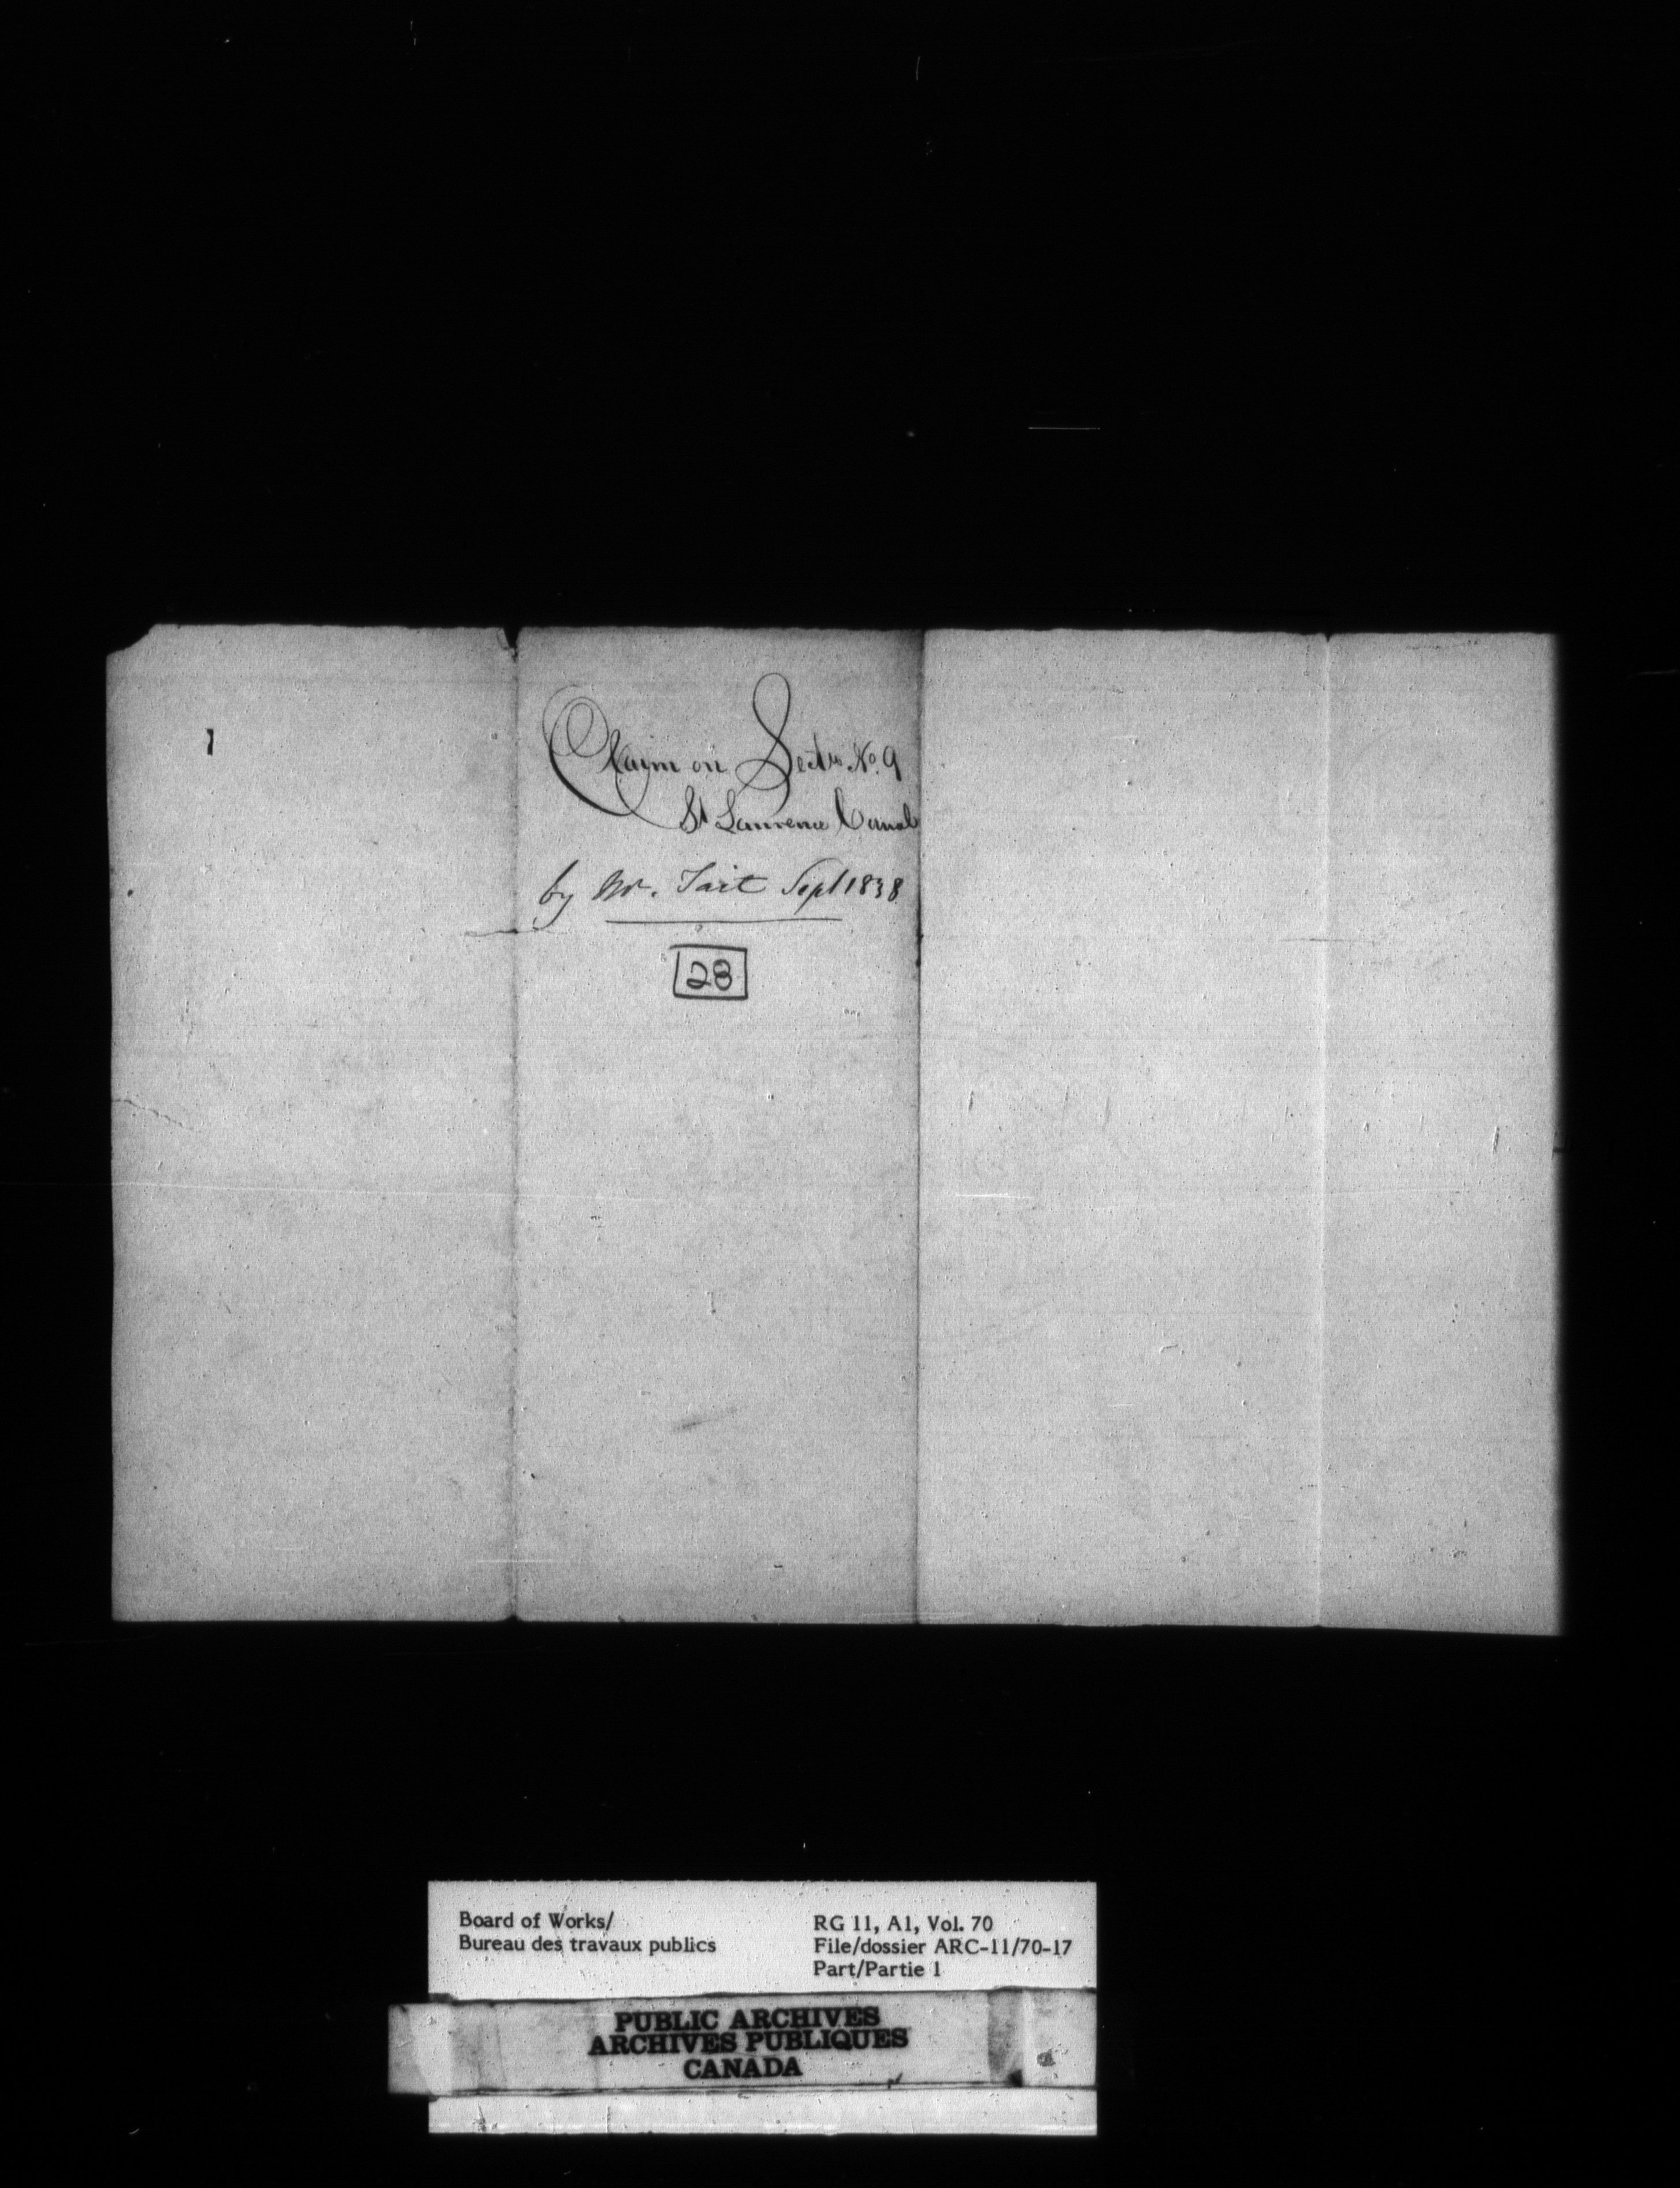 Claim on Sectn No. 9
St Lawrence Canal
by Mr. Tait Sept 1838
28
Board of Works/
Bureau des travaux publics
RG 11, A1, Vol. 70
File/dossier ARC-11/70-17
Part/Partie 1
PUBLIC ARCHIVES
ARCHIVES PUBLIQUES
CANADA